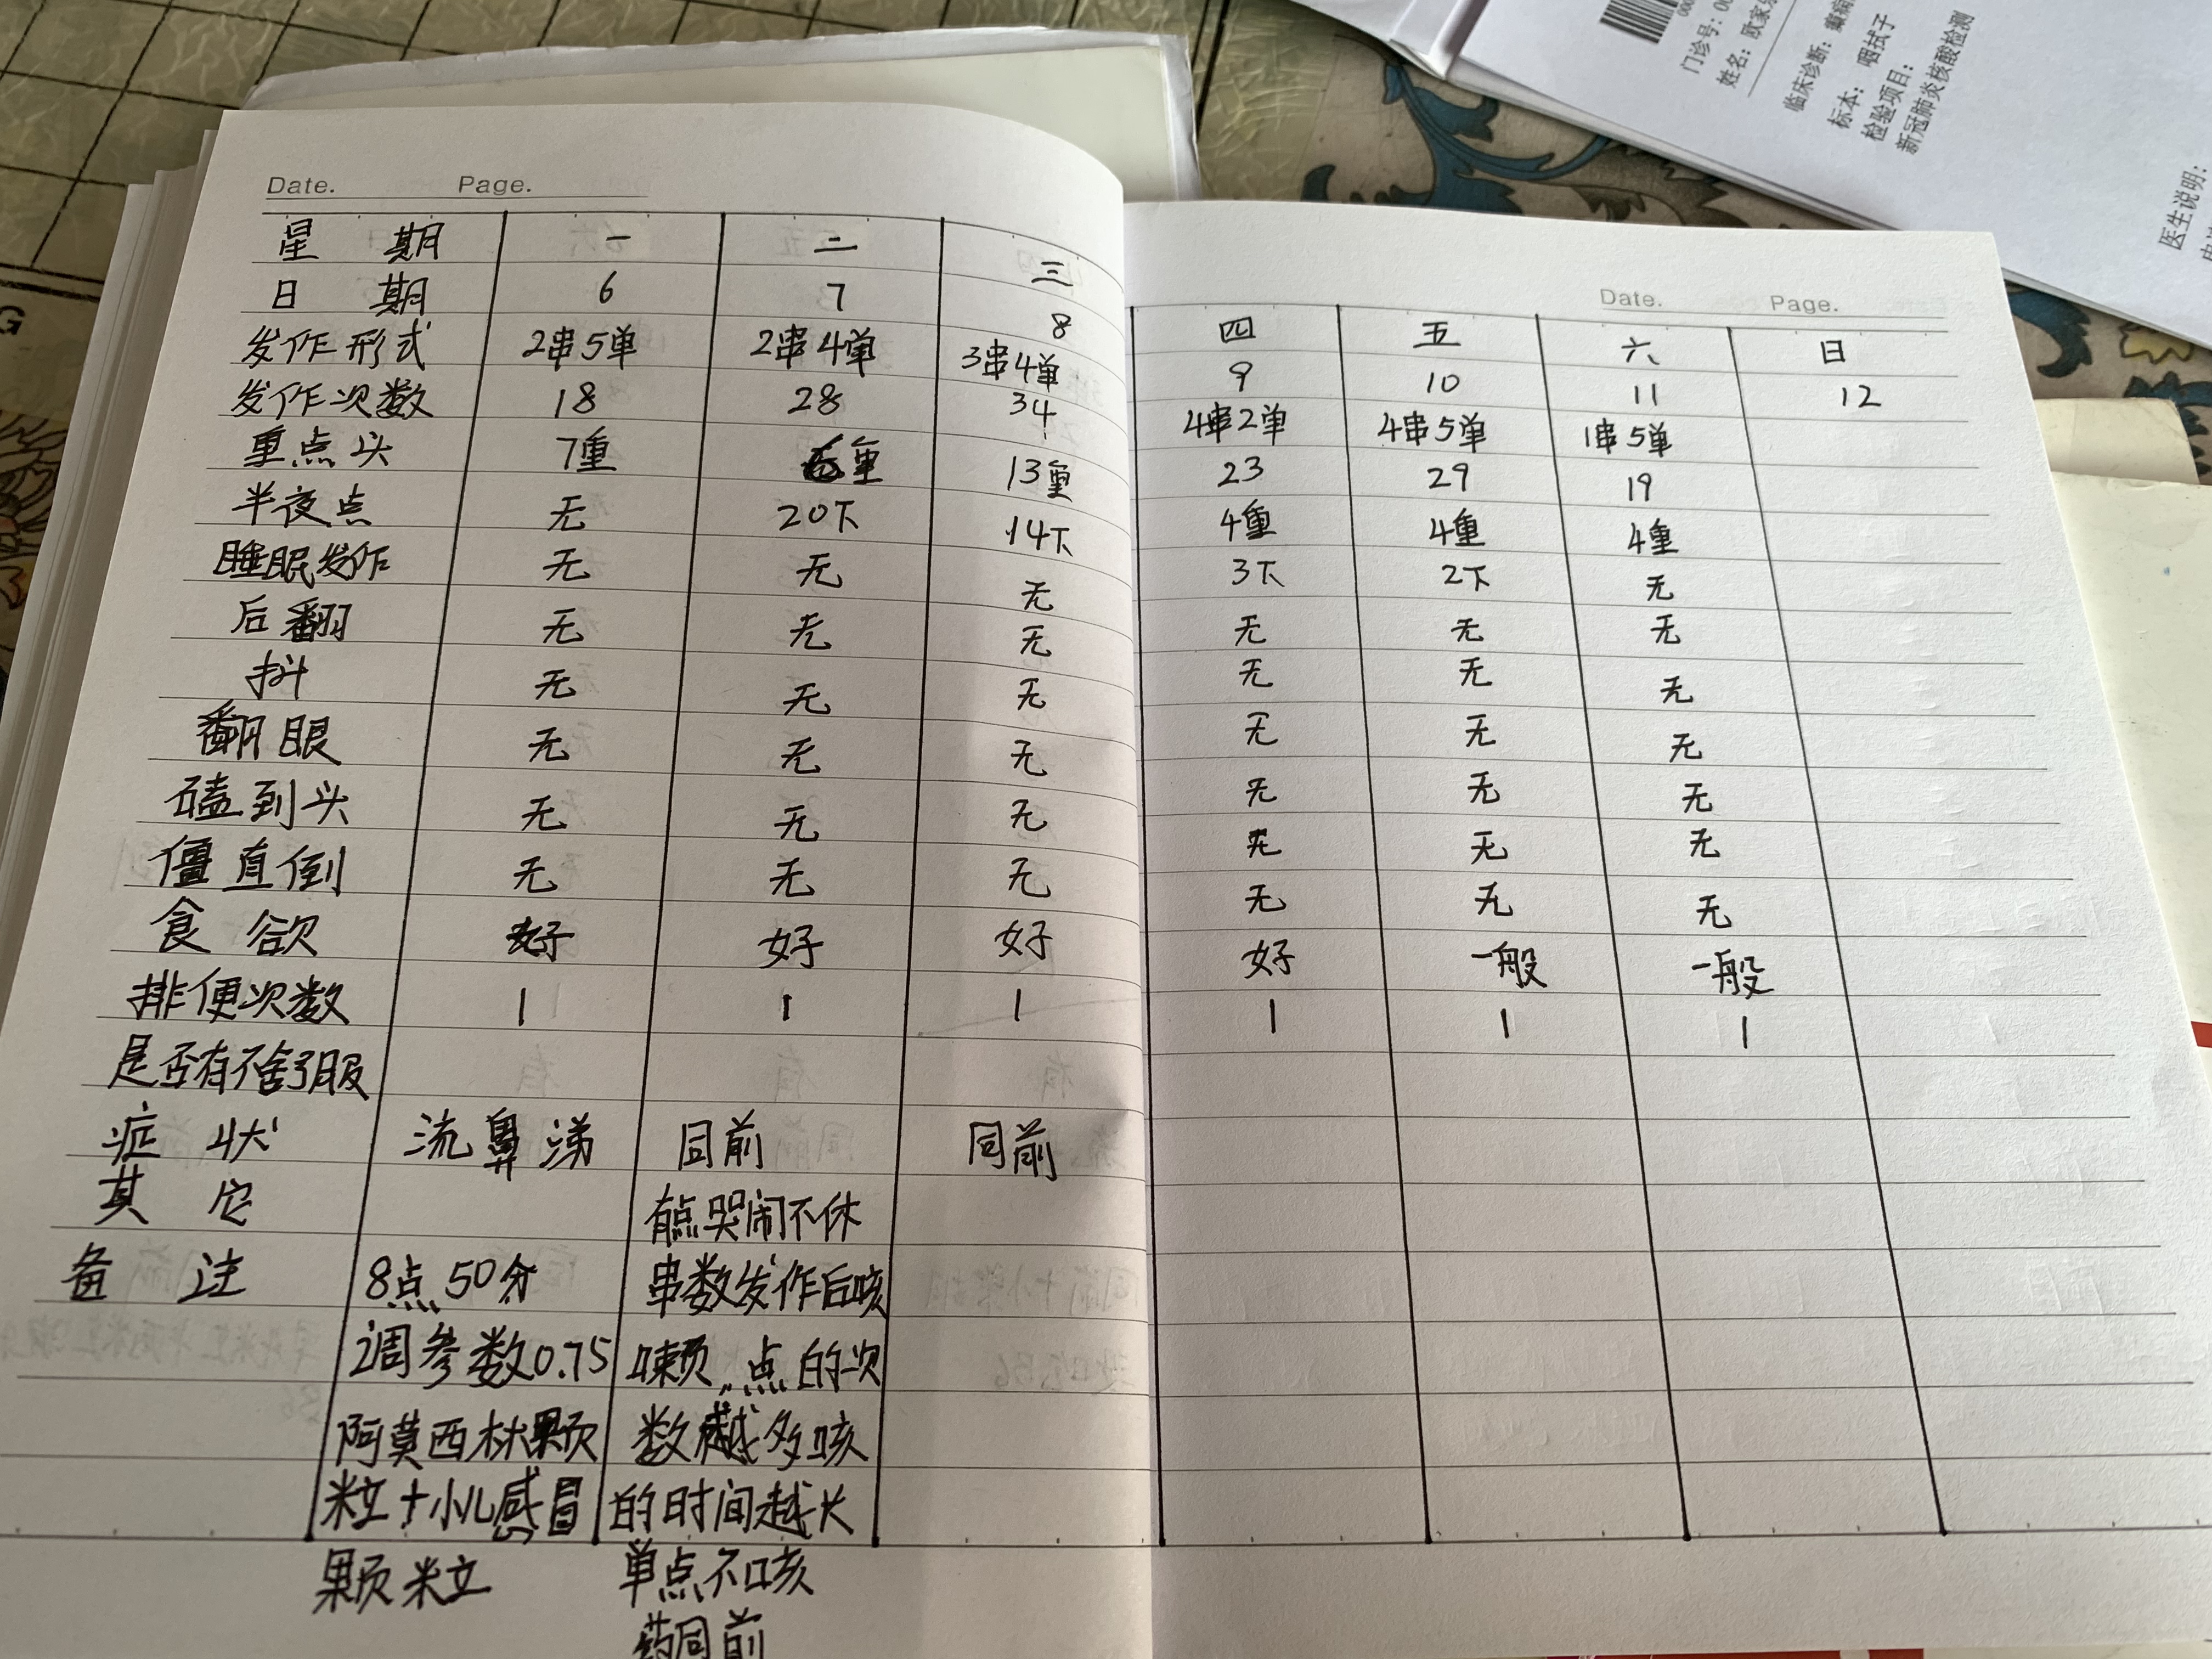 门诊号: 00
姓名: 欧家
临床诊断: 癫痫
标本: 咽拭子
检验项目:
新冠肺炎核酸检测
医生说明:
Date. Page.
Date. Page.
星期 一 二 三 四 五 六 日
日期 6 7 8 9 10 11 12
发作形式 2串5单 2串4单 3串4单 4串2单 4串5单 1串5单
发作次数 18 28 34 23 29 19
重点头 7重 重 13重 4重 4重 4重
半夜点 无 20下 14下 3下 2下 无
睡眠发作 无 无 无 无 无 无
后翻 无 无 无 无 无 无
抖 无 无 无 无 无 无
翻眼 无 无 无 无 无 无
磕到头 无 无 无 无 无 无
僵直倒 无 无 无 无 无 无
食欲 好 好 好 好 一般 一般
排便次数 1 1 1 1 1 1
是否有不舒服
症状 流鼻涕 同前 同前
其它 有点哭闹不休
备注 8点50分 串数发作后咳
调参数0.75 嗽 点的次
阿莫西林颗 数越多咳
粒+小儿感冒 的时间越长
颗粒 单点不咳
药同前